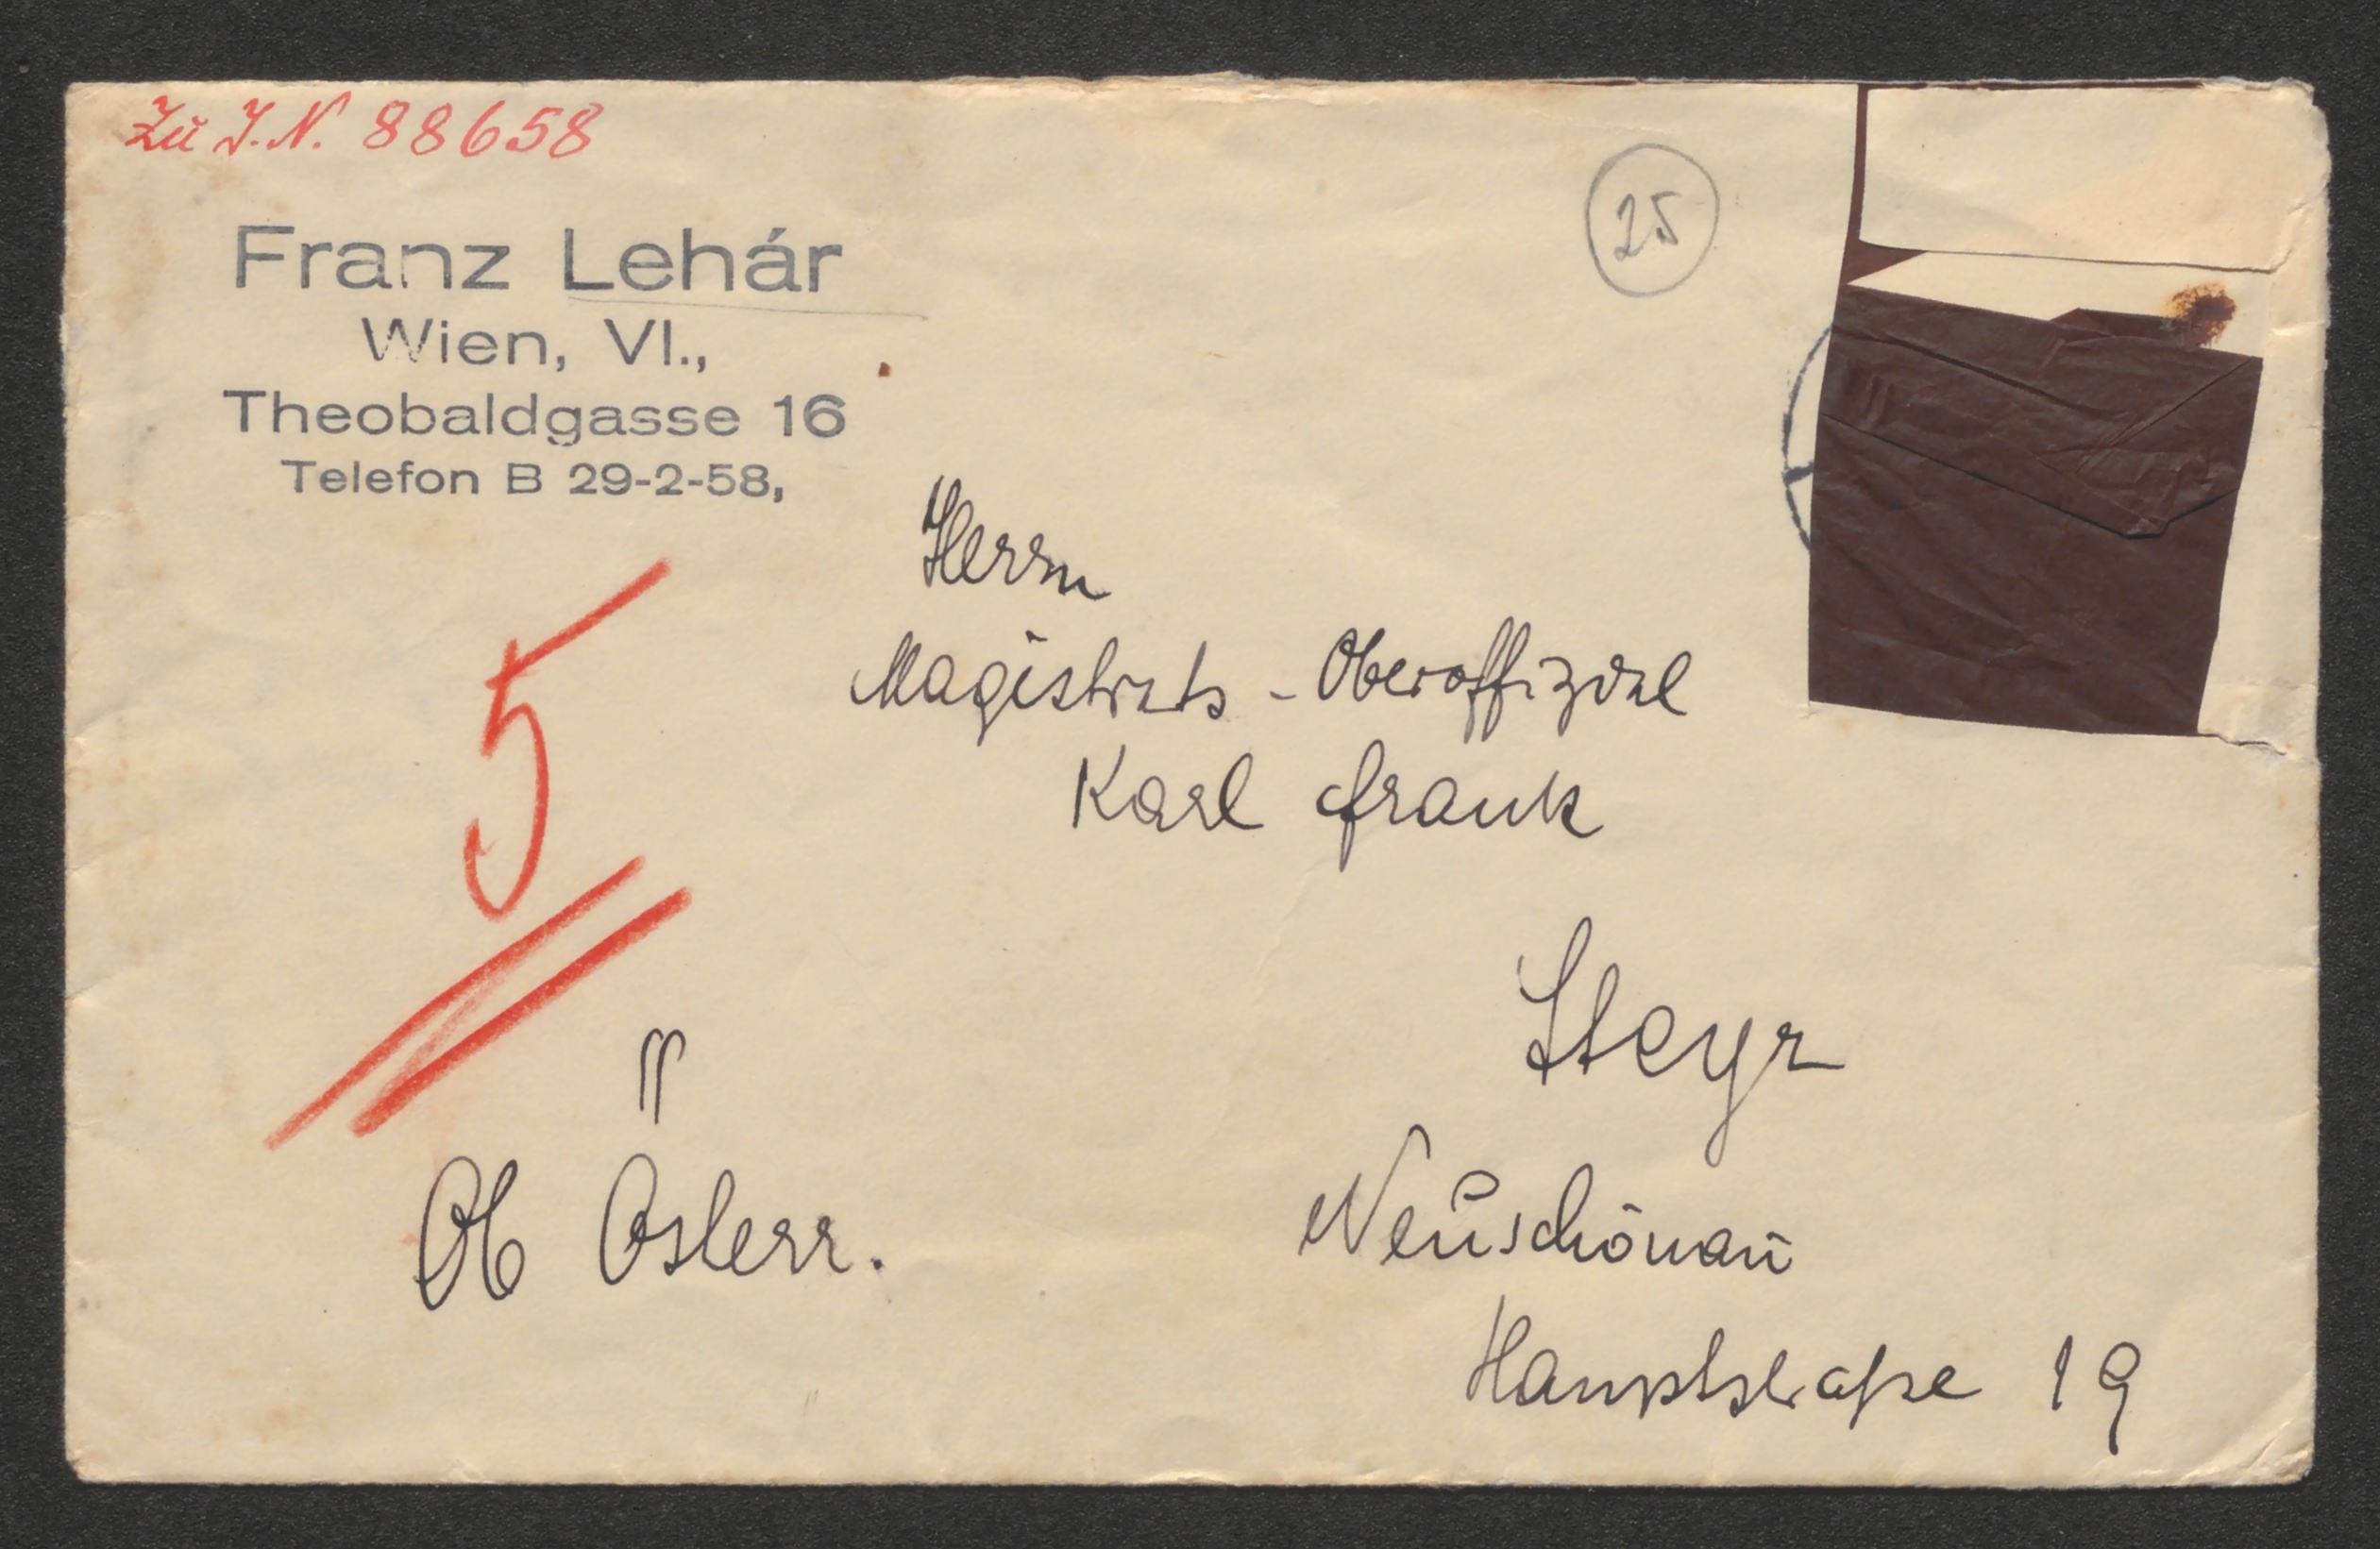 Zu I.N. 88658
25
Franz Lehár
Wien, VI.,
Theobaldgasse 16
Telefon B 29-2-58,
Herrn
Magistrats - Oberoffizial
Karl Frank
5
Steyr
Ob Österr.
Neuschönau
Hauptstraße 19